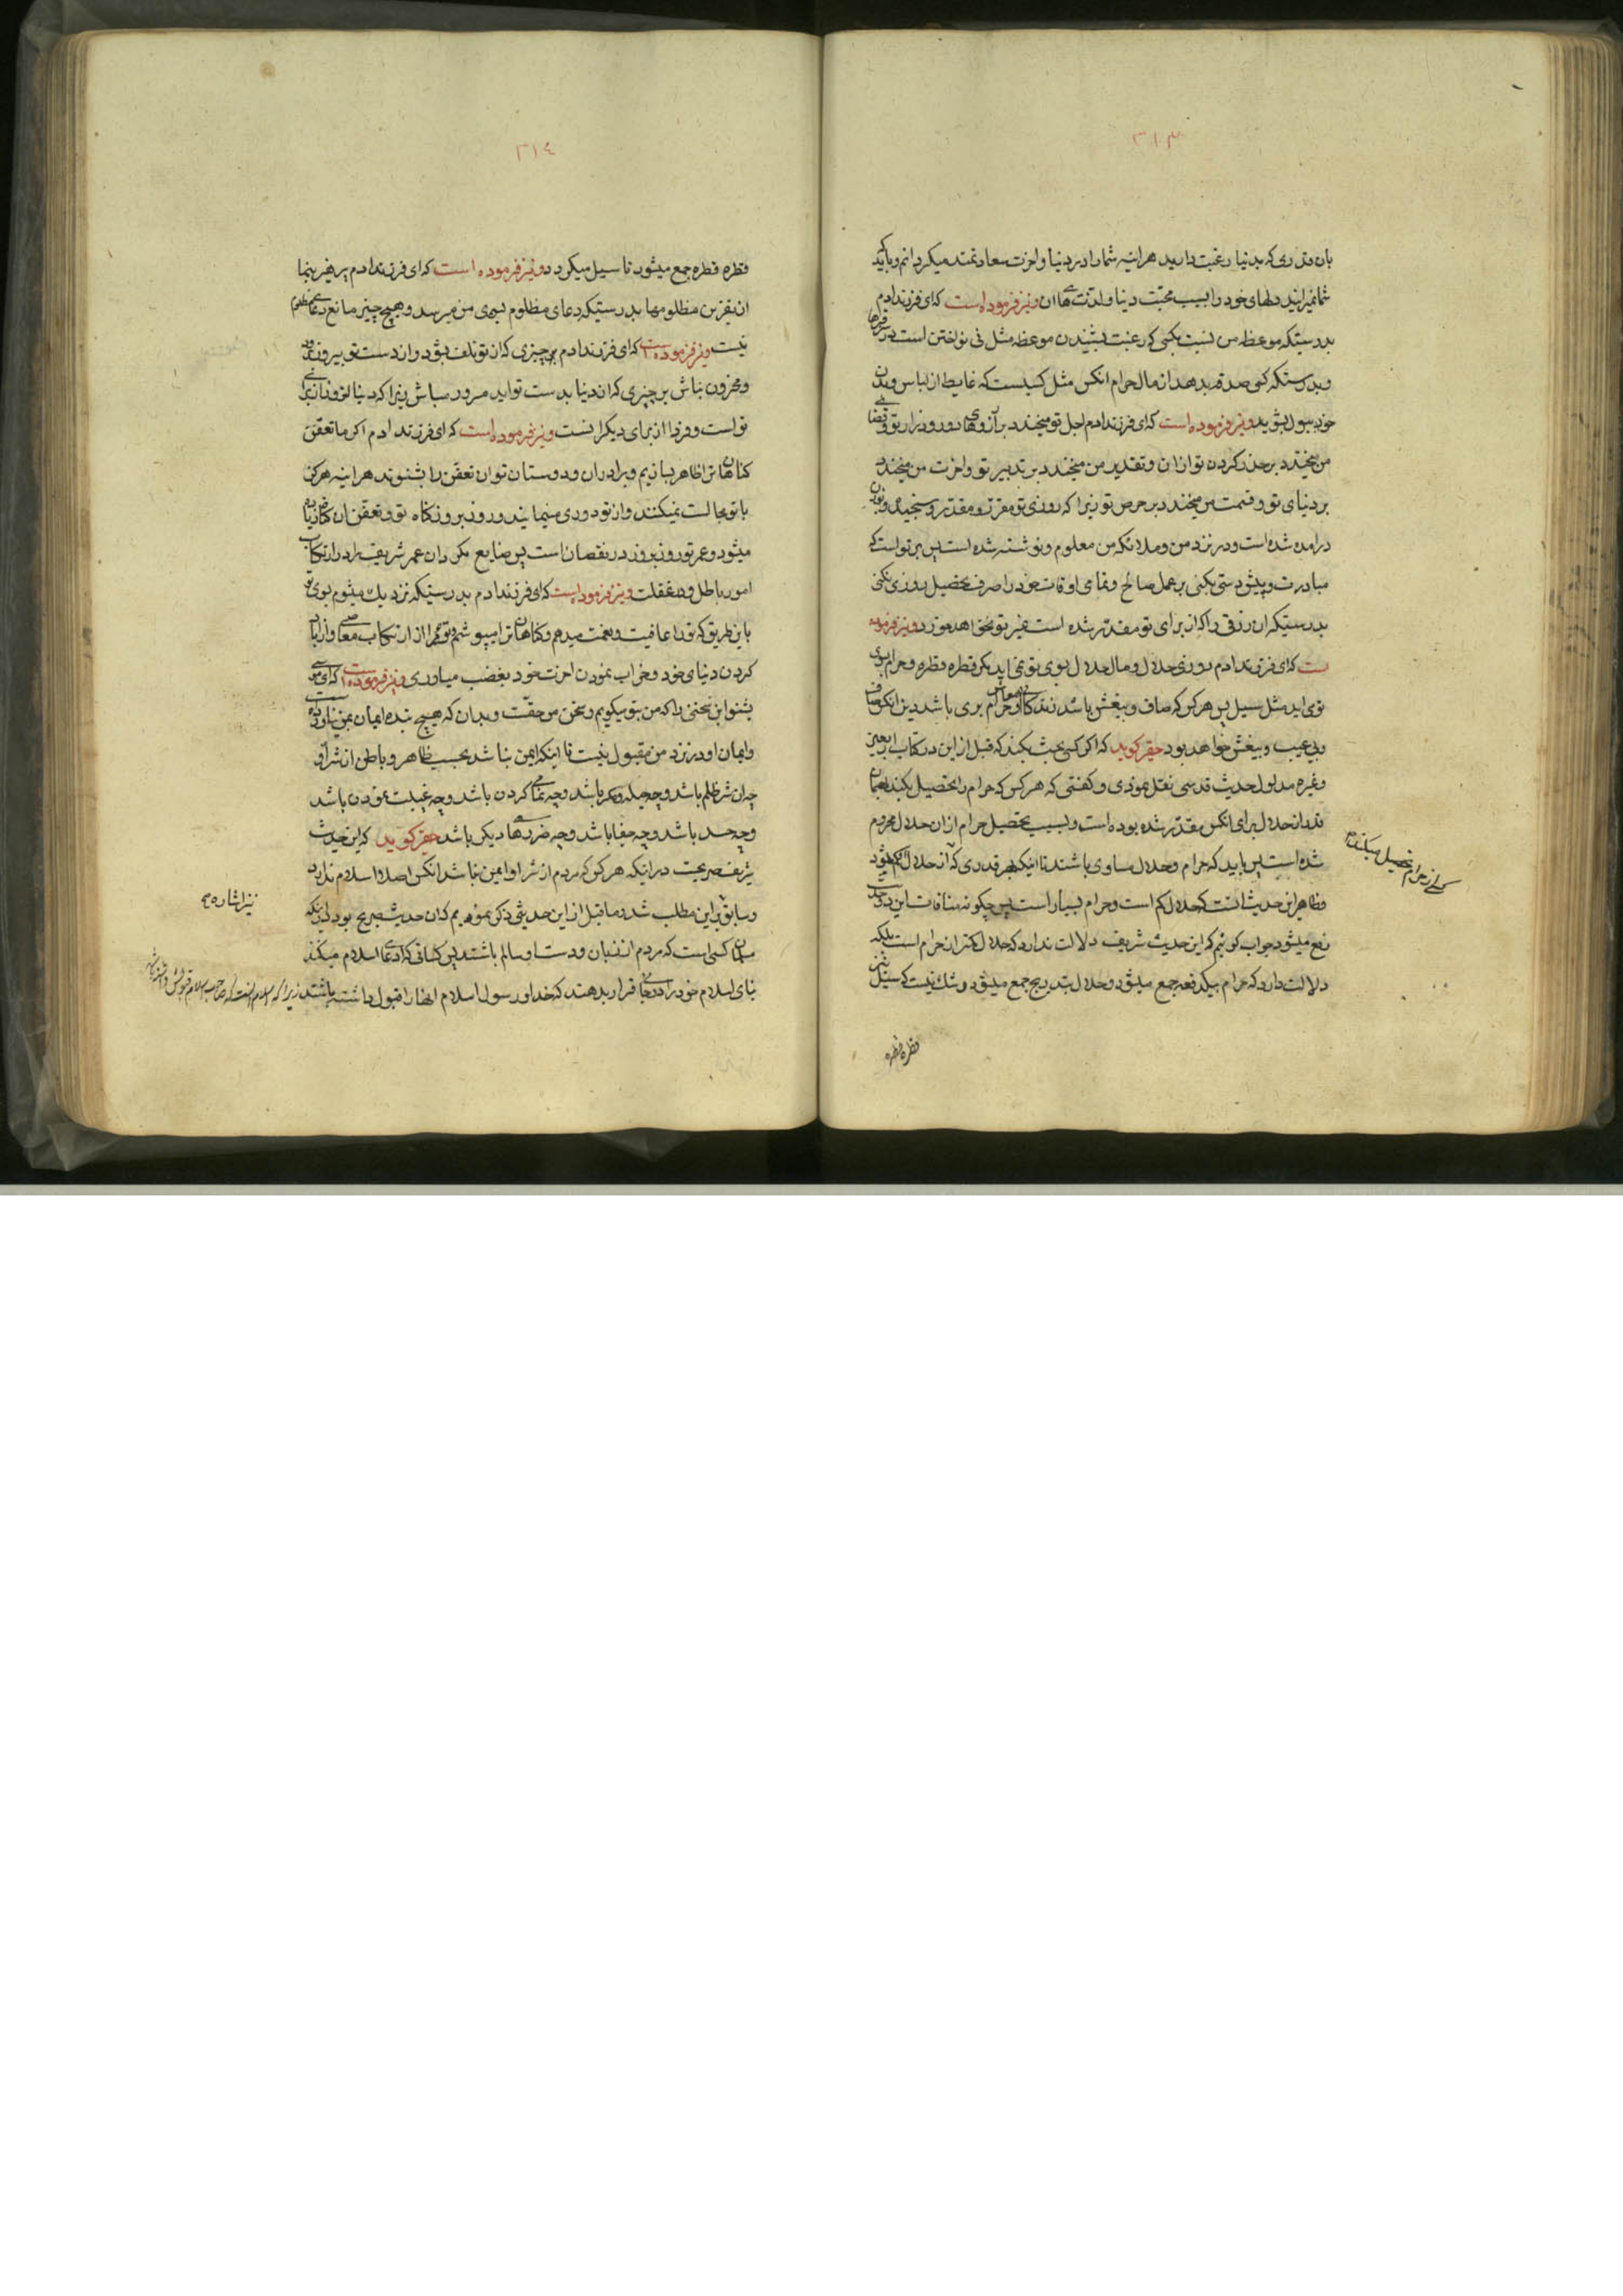 ۳۱۳
بان قدری که بدنیا رغبت دارید هرآینه شما را در دنیا و اخرت سعادتمند میکردانم و باید که
شما نمیرانید دلهای خود را بسبب محبت دنیا و لذت های ان و نیز فرموده است که ای فرزند ادم
بدرستیکه موعظه من نسبت بکسی که رغبت بشنیدن موعظه مثل نی نواختن است در
و بدرستیکه کسی صدقه بدهد از مال حرام انکس مثل کسیست که غایط از لباس و بدن
خود ببول بشوید و نیز فرموده است که ای فرزند ادم اجل تو میخندد بر آرزوهای دور و دراز تو و قضای
من میخندد بر حذر کردن تو از ان و تقدیر من میخندد بر تدبیر تو و اخرت من میخندد
بر دنیای تو و قسمت من میخندد بر حرص تو زیرا که روزی تو مقرر و مقدر و سنجیده و بوزن
درامده شده است و در نزد من و ملائکه من معلوم و نوشته شده است پس بر تو است که
مبادرت و پیشدستی بکنی بر عمل صالح و تمامی اوقات خود را صرف تحصیل روزی نکنی
بدرستیکه ان رزقی را که از برای تو مقدر شده است غیر تو نخواهد خورد و نیز فرموده
است که ای فرزند ادم روزی حلال و مال حلال بسوی تو نمی اید مکر قطره قطره و حرام بسوی
توی اید مثل سیل پس هر کس که صاف و بیغش باشد زندکانی و معاش او حرام بری باشد دین انکس صاف
و بی عیب و بیغش خواهد بود حقیر کوید که اکر کسی بحث بکند که قبل از این در کتاب اربعین
و غیره مدلول حدیث قدسی نقل نمودی و کفتی که هر کس که حرام را تحصیل بکند همان
قدر از حلال برای انکس مقدر شده بوده است و بسبب تحصیل حرام از ان حلال محروم
شده است پس باید که حرام و حلال مساوی باشند تا اینکه هر قدری که از حلال کم میشود
کسی از حرام تحصیل میکند
و ظاهر این حدیث انست که حلال کم است و حرام بسیار است پس چکونه منافات این دو حدیث
رفع میشود جواب کوئیم که این حدیث شریف دلالت ندارد که حلال کمتر از حرام است بلکه
دلالت دارد که حرام بیکدفعه جمع میشود و حلال بتدریج جمع میشود و شک نیست که سیل نیز
قطره قطره
۳۱٤
قطره قطره جمع میشود تا سیل میکردد و نیز فرموده است که ای فرزند ادم پرهیز بنما
از نفرین مظلومها بدرستیکه دعای مظلوم بسوی من میرسد و هیچ چیز مانع دعای مظلوم
نیست و نیز فرموده است که ای فرزند ادم بر چیزی که از تو تلف بشود و از دست تو بیرون رود
و محزون مباش بر چیزی که از دنیا بدست تو اید مسرور مباش زیرا که دنیا امروز از برای
تو است و فردا از برای دیکرانست و نیز فرموده است که ای فرزند ادم اکر ما تعفن
کناهان ترا ظاهر بسازیم و برادران و دوستان تو ان تعفن را بشنوند هراینه هرکز
با تو مجالست نمیکنند و از تو دوری مینمایند و روز بروز کناه تو و تعفن ان کناه زیاد
میشود و عمر تو روز بروز در نقصان است پس ضایع مکردان عمر شریف را در ارتکاب
امور باطل و غفلت و نیز فرموده است که ای فرزند ادم بدرستیکه نزدیک میشوم بسوی تو
باین طریق که تو را عافیت و نعمت میدهم و کناهان ترا میپوشم و تو مرا از ارتکاب معاصی و از اباد
کردن دنیای خود و خراب نمودن اخرت خود بغضب میاوری و نیز فرموده است که ای موسی
بشنو این سخنی را که من بتو میکویم و سخن من حقست و بدان که هیچ بنده ایمان بمن نیاورده است
و ایمان او در نزد من مقبول نیست تا اینکه ایمن نباشد بحسب ظاهر و باطن از شر او
چه ان شر ظلم باشد و چه حیله و مکر باشد و چه نمامی کردن باشد و چه غیبت نمودن باشد
و چه حسد باشد و چه جفا باشد و چه ضررهای دیکر باشد حقیر کوید که این حدیث
نیز نص صریحست در اینکه هر کس که مردم از شر او ایمن نباشد انکس اصلا اسلام ندارد
و سابق بر این مطلب شد و ما قبل از این حدیثی ذکر نمودیم که ان حدیث صریح بود در اینکه
نیز اشاره
مسلمان کسی است که مردم از زبان و دست او سالم باشند پس کسانی که ادعای اسلام میکنند
بنای اسلام خود را در جائی قرار بدهند که خدا و رسول اسلام انها را قبول داشته باشند زیرا که اسلام